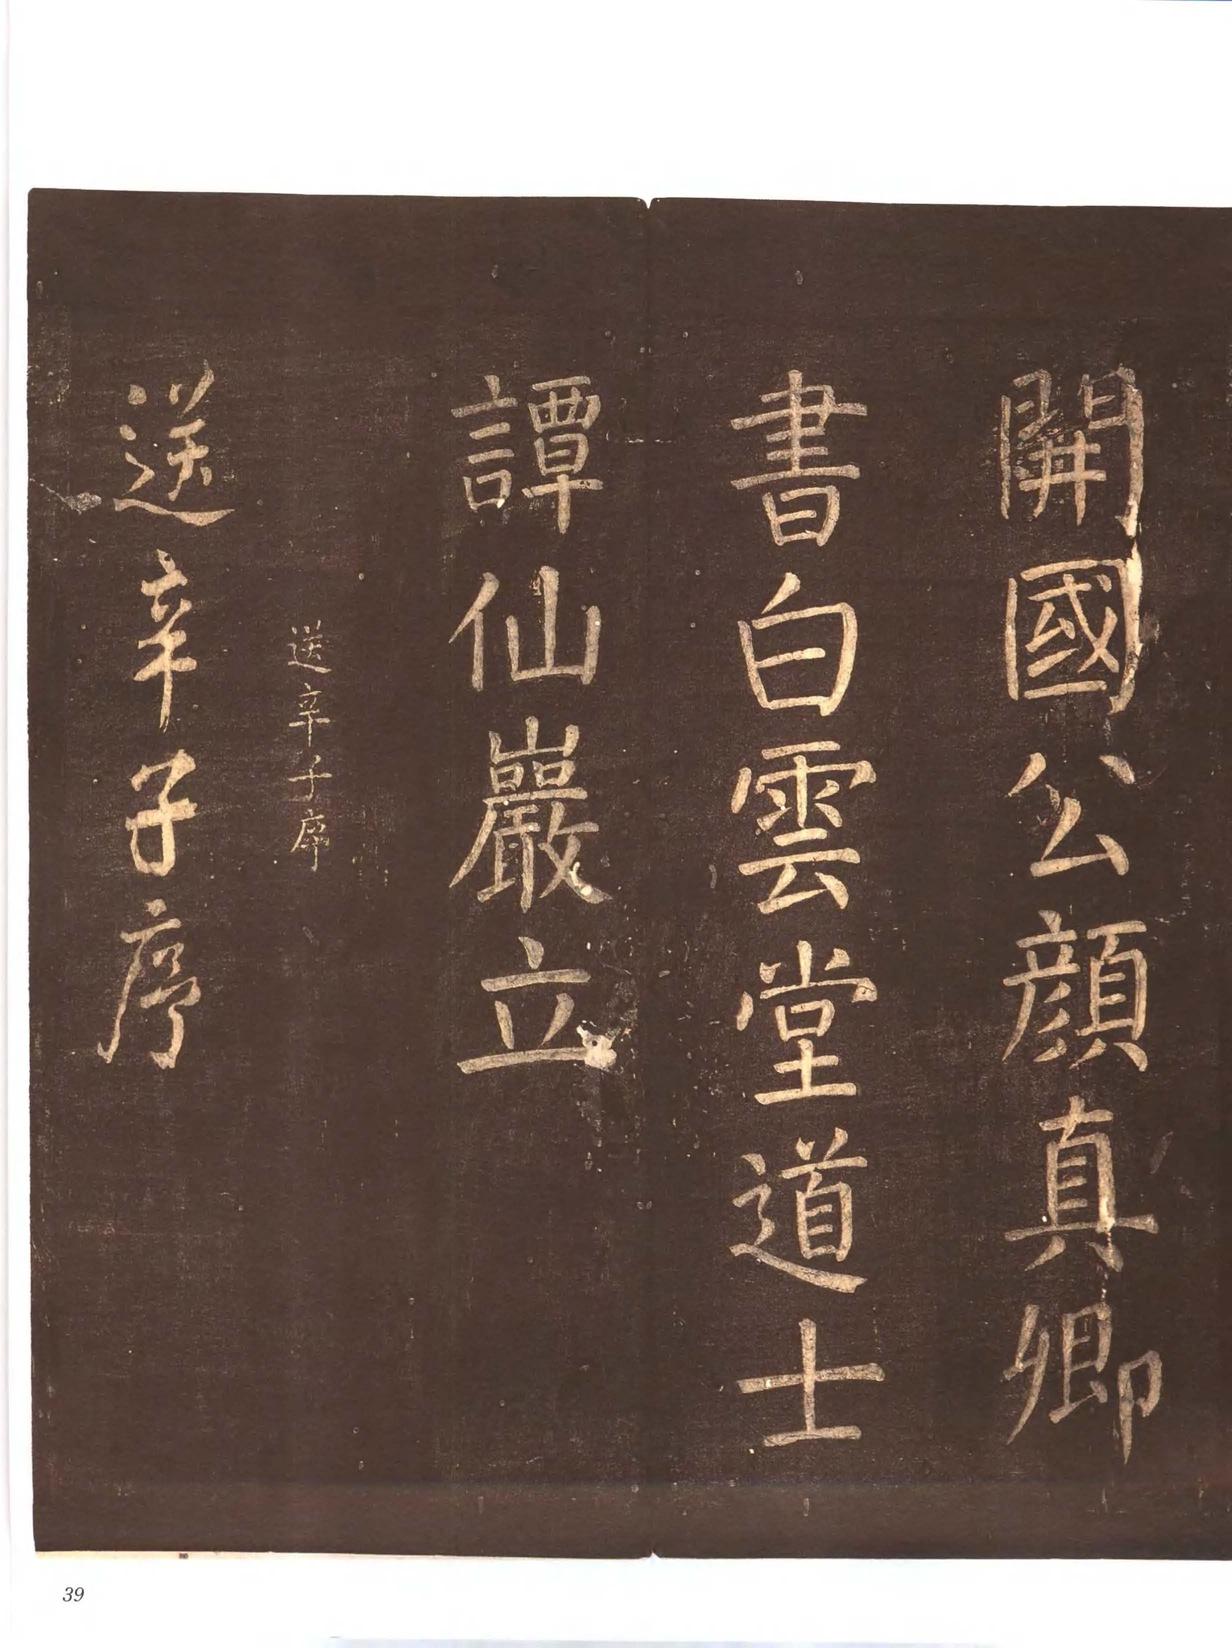 開國公顏真卿
書白雲堂道士
譚仙巖立
送辛子序
送辛子序
39